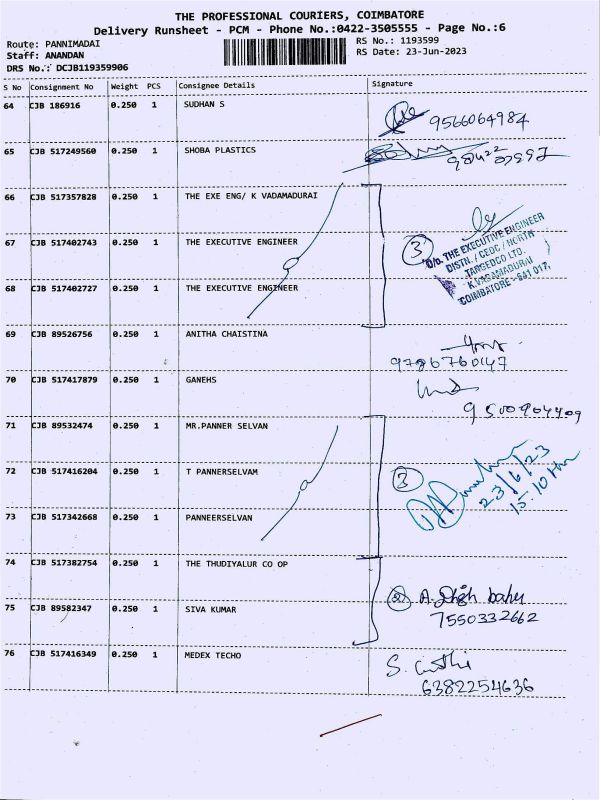 THE PROFESSIONAL COURIERS, COIMBATORE
Delivery Runsheet - PCM - Phone No.:0422-3505555 - Page No.:6
Route: PANNIMADAI RS No.: 1193599
Staff: ANANDAN RS Date: 23-Jun-2023
DRS No.: DCJB119359906
S No Consignment No Weight PCS Consignee Details Signature
64 CJB 186916 0.250 1 SUDHAN S
9566064984
65 CJB 517249560 0.250 1 SHOBA PLASTICS
66 CJB 517357828 0.250 1 THE EXE ENG/ K VADAMADURAI
67 CJB 517402743 0.250 1 THE EXECUTIVE ENGINEER
3
O/o. THE EXECUTIVE ENGINEER
DISTN. / CEDC / NORTH
TANGEDCO LTD.
K.VADAMADURAI
COIMBATORE - 641 017.
68 CJB 517402727 0.250 1 THE EXECUTIVE ENGINEER
69 CJB 89526756 0.250 1 ANITHA CHAISTINA
9786760147
70 CJB 517417879 0.250 1 GANEHS
9500904409
71 CJB 89532474 0.250 1 MR.PANNER SELVAN
72 CJB 517416204 0.250 1 T PANNERSELVAM
3
23/6/23
15:10
73 CJB 517342668 0.250 1 PANNEERSELVAN
74 CJB 517382754 0.250 1 THE THUDIYALUR CO OP
2 A.
75 CJB 89582347 0.250 1 SIVA KUMAR
7550332662
76 CJB 517416349 0.250 1 MEDEX TECHO
S.
6382254636